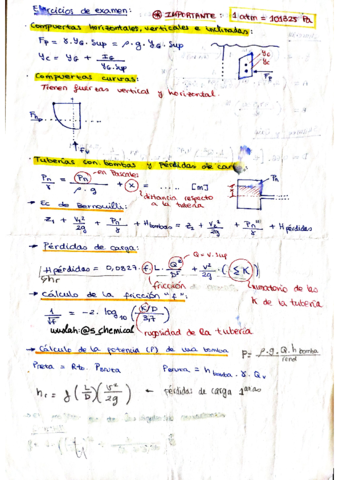 Ejercicios de examen:
* IMPORTANTE: 1 atm = 101325 Pa
· Compuertas horizontales, verticales e inclinadas:
Fp = γ. YG. Sup = ρ. g. YG. Sup
YC = YG + IG / YG. Sup
YG
YC
Fp
· Compuertas curvas:
Tienen fuerzas vertical y horizontal.
Tuberías con bombas y pérdidas de
en Pascales
Pn/γ = Pn / ρ. g + x = ...... [m]
distancia respecto
a la tubería
→ Ec de Bernouilli:
Z1 + V1²/2g + P1/γ + Hbombas = Z2 + V2²/2g + Pn/γ + Hpérdidas
→ Pérdidas de carga:
Q = v. Sup
Hpérdidas = 0,0827. f. L. Q²/D⁵ + V²/2g . (ΣK)
fricción
sumatorio de las
K de la tubería
→ Cálculo de la fricción "f":
1/√f = -2. log10 (K/D / 3,7)
wuolah:@s_chemical
rugosidad de la tubería
→ Cálculo de la potencia (P) de una bomba
P = ρ. g. Q. h bomba / rend
Prexa = Rto. Peruta
hr = f (L/D) (V²/2g) ← pérdidas de carga